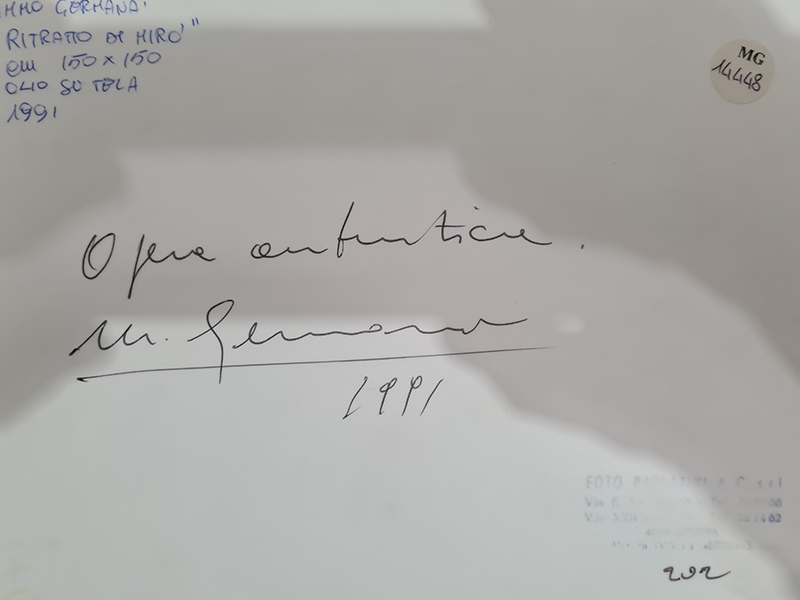 MMO GERMANÀ.
RITRATTO DI MIRÒ"
cm 150 x 150
OLIO SU TELA
1991
MG
14448
Opera autentica.
M. Germanà
1991
FOTO
202